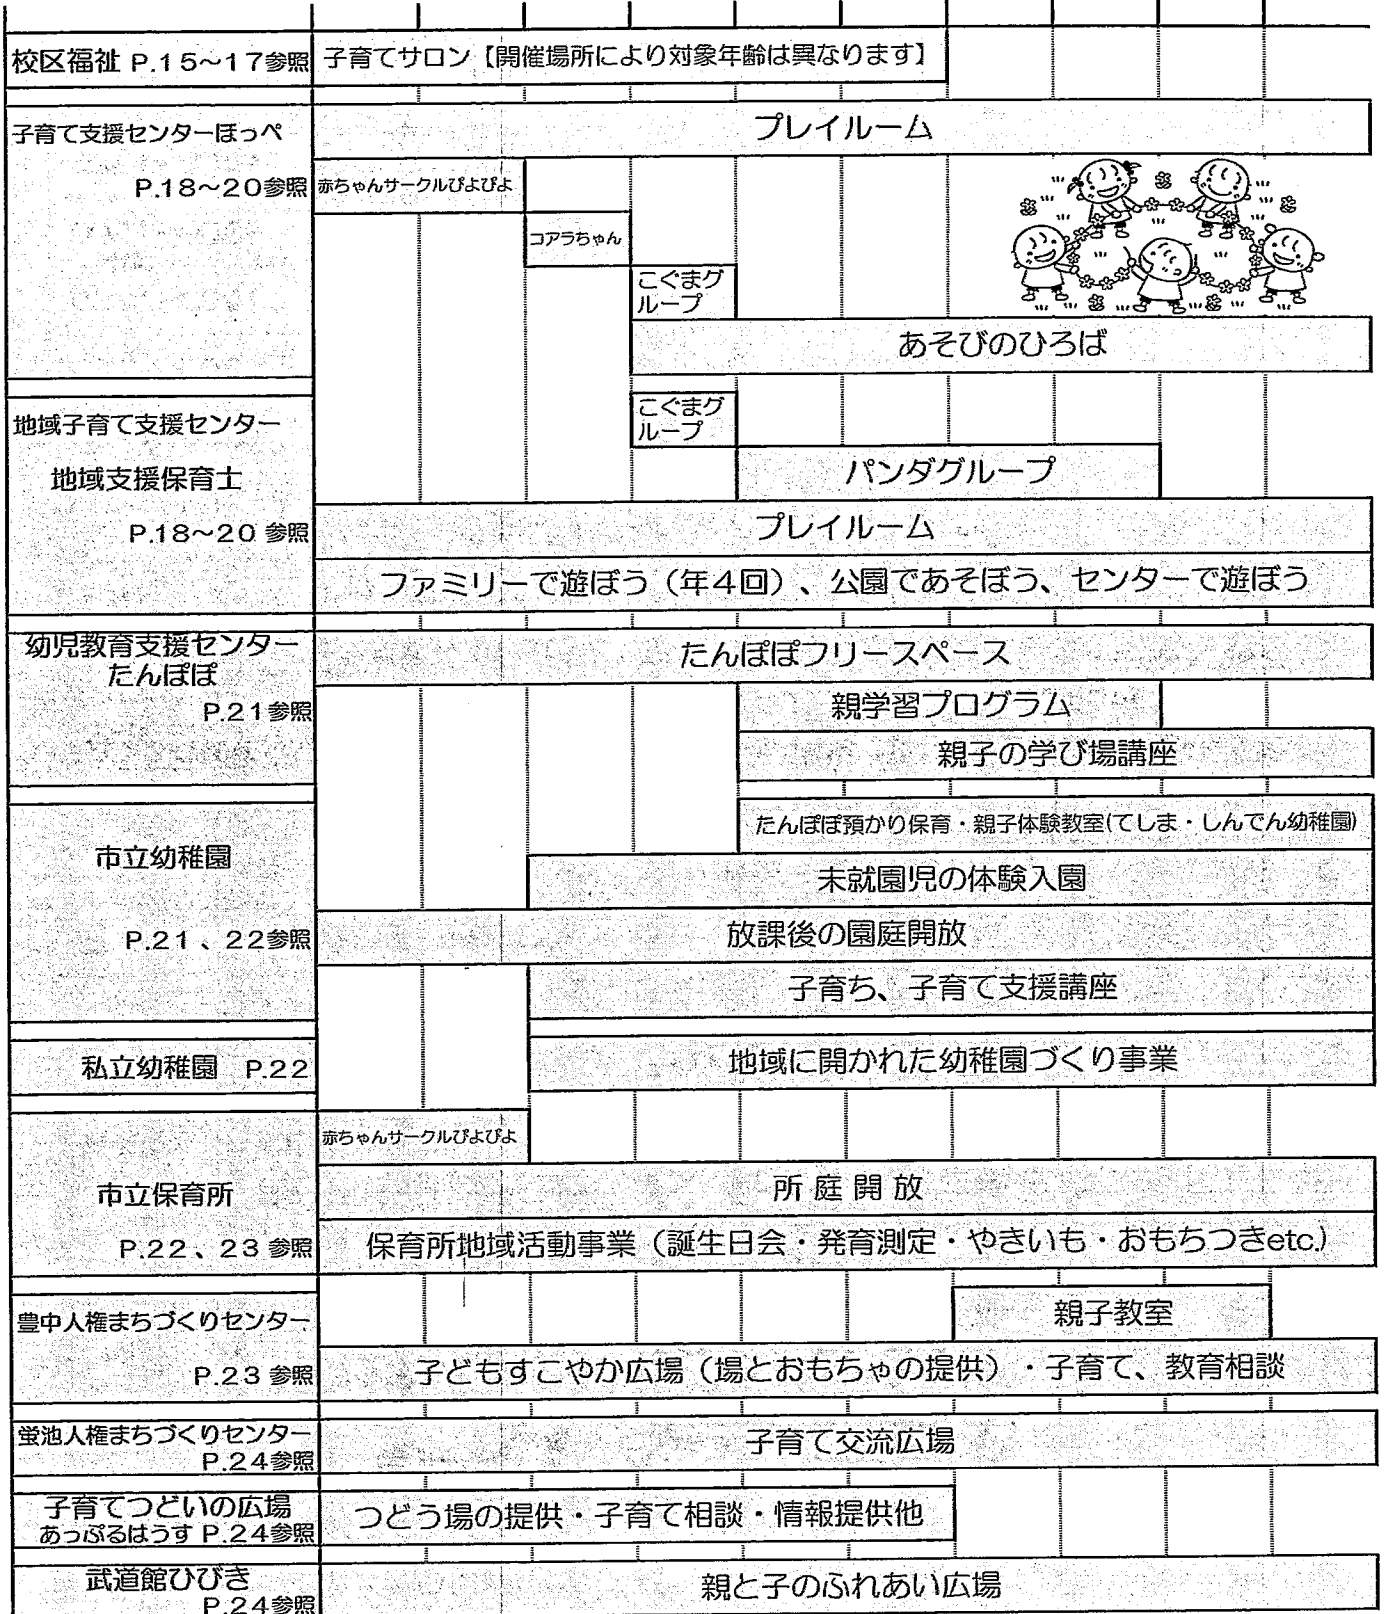 校区福祉 P.15～17参照
子育てサロン【開催場所により対象年齢は異なります】
子育て支援センターほっぺ
P.18～20参照
プレイルーム
赤ちゃんサークルぴよぴよ
コアラちゃん
こぐまグ
ループ
あそびのひろば
地域子育て支援センター
地域支援保育士
P.18～20 参照
こぐまグ
ループ
パンダグループ
プレイルーム
ファミリーで遊ぼう（年4回）、公園であそぼう、センターで遊ぼう
幼児教育支援センター
たんぽぽ
P.21参照
たんぽぽフリースペース
親学習プログラム
親子の学び場講座
市立幼稚園
P.21、22参照
たんぽぽ預かり保育・親子体験教室(てしま・しんでん幼稚園)
未就園児の体験入園
放課後の園庭開放
子育ち、子育て支援講座
私立幼稚園 P.22
地域に開かれた幼稚園づくり事業
市立保育所
P.22、23 参照
赤ちゃんサークルぴよぴよ
所庭開放
保育所地域活動事業（誕生日会・発育測定・やきいも・おもちつきetc.）
豊中人権まちづくりセンター
P.23 参照
親子教室
子どもすこやか広場（場とおもちゃの提供）・子育て、教育相談
蛍池人権まちづくりセンター
P.24参照
子育て交流広場
子育てつどいの広場
あっぷるはうす P.24参照
つどう場の提供・子育て相談・情報提供他
武道館ひびき
P.24参照
親と子のふれあい広場